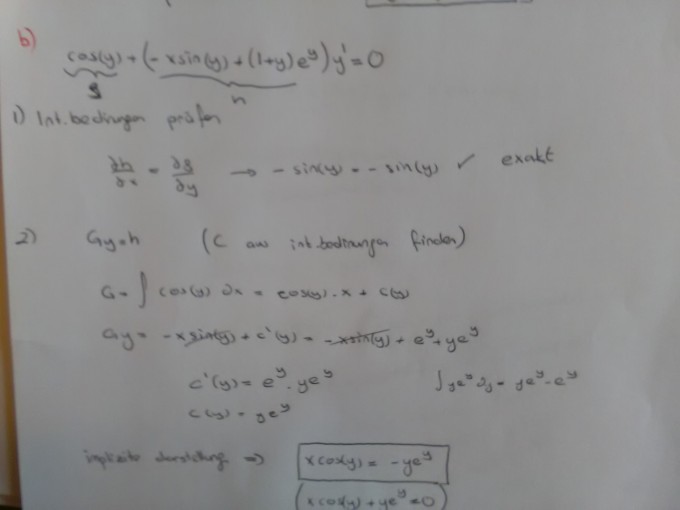 b)
cos(y) + (-xsin(y) + (1+y)e^y) y' = 0
g h
1) Int.bedingungen prüfen
∂h/∂x = ∂g/∂y → -sin(y) = -sin(y) ✓ exakt
2) Gy=h (C aus int.bedingungen finden)
G = ∫ cos(y) ∂x = cos(y)·x + c(y)
Gy = -xsin(y) + c'(y) = -xsin(y) + e^y + ye^y
c'(y) = e^y · ye^y ∫ye^y ∂y = ye^y - e^y
c(y) = ye^y
implizite darstellung ⇒ xcos(y) = -ye^y
xcos(y) + ye^y = 0